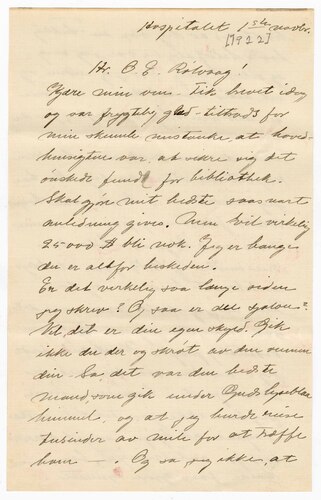 Hospitalet 1ste novbr.
[1922]
Hr. O. E. Rölvaag!
Kjære min ven. Fik brevet idag
og var frygtelig glad - tiltrods for
min skumle mistanke, at hoved-
hensigten var, at sikre sig det
ønskede fund for bibliothek.
Skal gjøre mit bedste saasnart
anledning gives. Men vil virkelig
25000 $ bli nok. Jeg er bange
du er altfor beskeden.
Er det virkelig saa længe siden
jeg skrev? Og saa er det
Vel det er din egen skyld. Gik
ikke du der og skrøt av den
din. Sa, det var den bedste
mand, som gik under Guds lyseblaa
himmel, og at jeg burde reise
tusender av mile for at træffe
ham —. Og saa jeg ikke, at